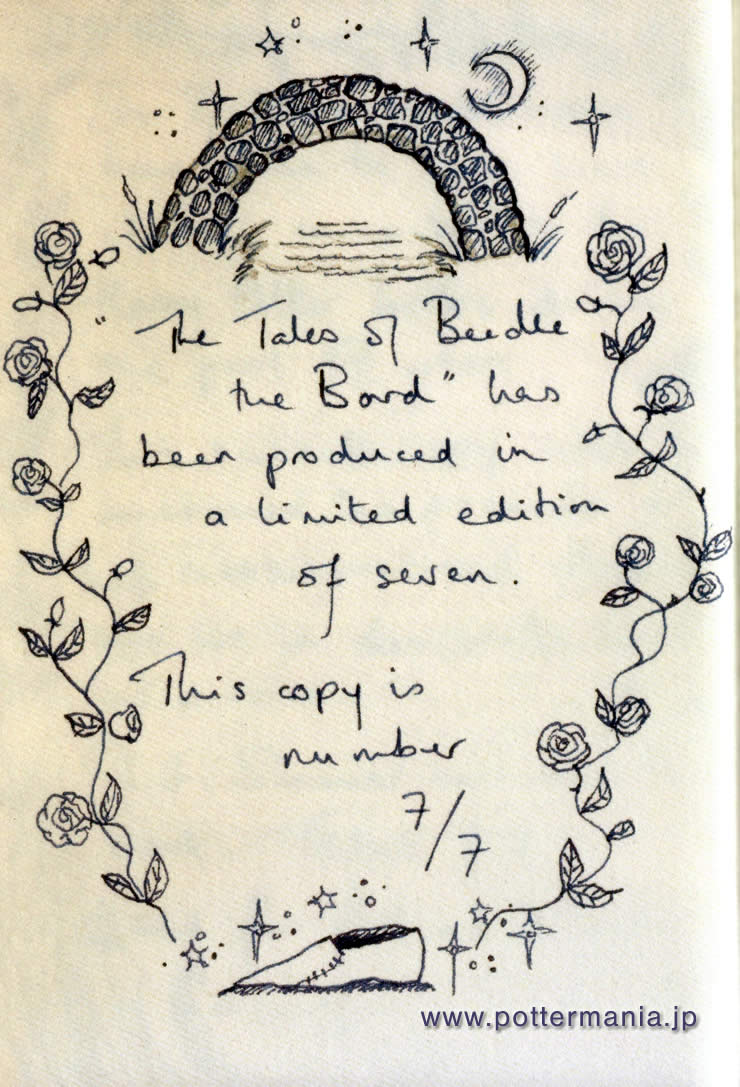 "The Tales of Beedle
the Bard" has
been produced in
a limited edition
of seven.
This copy is
number
7/7
www.pottermania.jp